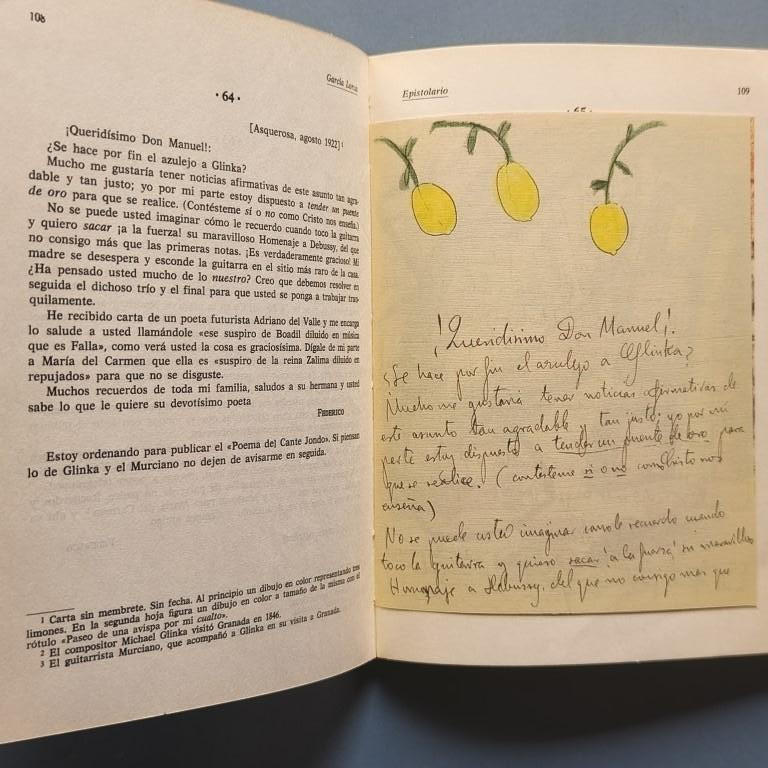 108
García Lorca
· 64 ·
[Asquerosa, agosto 1922]¹
¡Queridísimo Don Manuel!:
¿Se hace por fin el azulejo a Glinka?
Mucho me gustaría tener noticias afirmativas de este asunto tan agra-
dable y tan justo; yo por mi parte estoy dispuesto a tender un puente
de oro para que se realice. (Contésteme sí o no como Cristo nos enseña.)
No se puede usted imaginar cómo le recuerdo cuando toco la guitarra
y quiero sacar ¡a la fuerza! su maravilloso Homenaje a Debussy, del que
no consigo más que las primeras notas. ¡Es verdaderamente gracioso! Mi
madre se desespera y esconde la guitarra en el sitio más raro de la casa.
¿Ha pensado usted mucho de lo nuestro? Creo que debemos resolver en
seguida el dichoso trío y el final para que usted se ponga a trabajar tran-
quilamente.
He recibido carta de un poeta futurista Adriano del Valle y me encarga
lo salude a usted llamándole «ese suspiro de Boadil diluido en música
que es Falla», como verá usted la cosa es graciosísima. Dígale de mi parte
a María del Carmen que ella es «suspiro de la reina Zalima diluido en
repujados» para que no se disguste.
Muchos recuerdos de toda mi familia, saludos a su hermana y usted
sabe lo que le quiere su devotísimo poeta
Federico
Estoy ordenando para publicar el «Poema del Cante Jondo». Si piensan
lo de Glinka y el Murciano no dejen de avisarme en seguida.
¹ Carta sin membrete. Sin fecha. Al principio un dibujo en color representando tres
limones. En la segunda hoja figura un dibujo en color a tamaño de la misma con el
rótulo «Paseo de una avispa por mi cualto».
² El compositor Michael Glinka visitó Granada en 1846.
³ El guitarrista Murciano, que acompañó a Glinka en su visita a Granada.
Epistolario
109
¡Queridisimo Don Manuel!.
¿Se hace por fin el azulejo a Glinka?
Mucho me gustaria tener noticias afirmativas de
este asunto tan agradable y tan justo; yo por mi
parte estoy dispuesto a tender un puente de oro para
que se realice. (contesteme si o no como Cristo nos
enseña)
No se puede usted imaginar como le recuerdo cuando
toco la guitarra y quiero sacar ¡a la fuerza! su maravilloso
Homenaje a Debussy, del que no consigo mas que